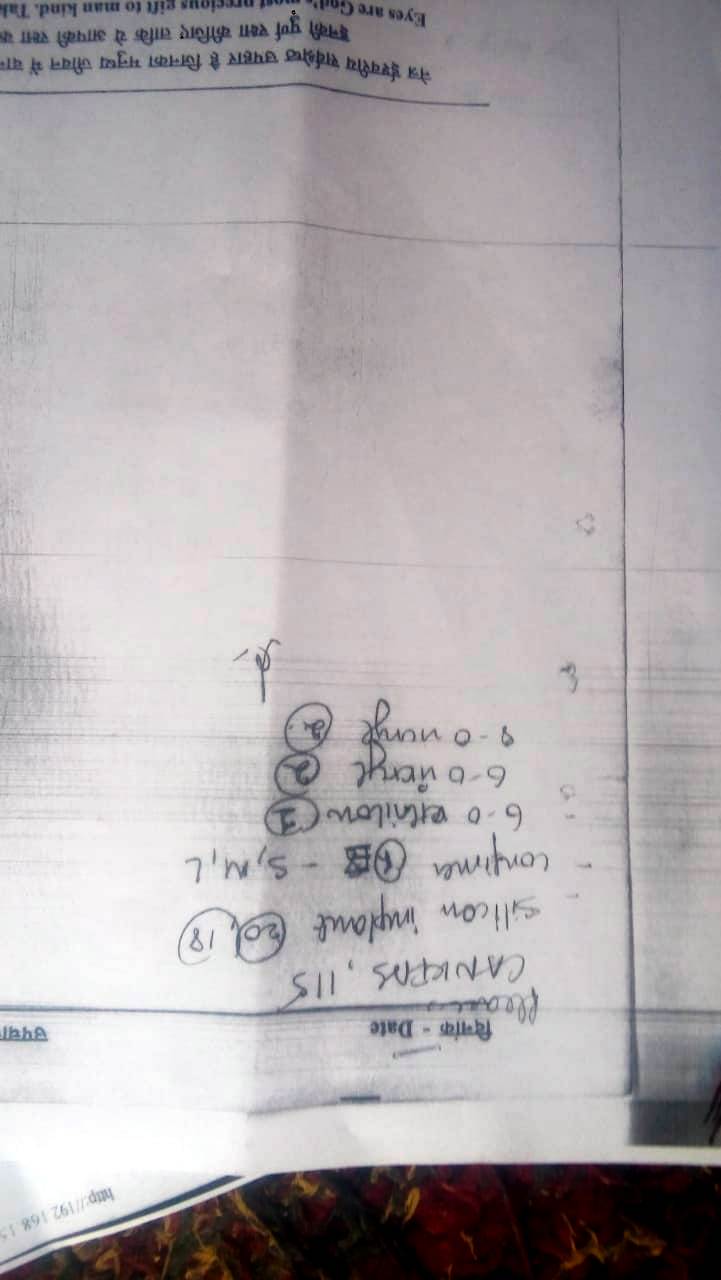 http://192.168.15
दिनांक - Date उपचा
Please
CANKIDS, 115
silicon implant 20, 18
conformer 1 - S, M, L
6-0 ethilon 1
6-0 vicryl 2
8-0 vicryl 2
नेत्र ईश्वरीय सर्वश्रेष्ठ उपहार है जिनका मनुष्य जीवन में
इनकी पूर्ण रक्षा कीजिए ताकि ये आपकी रक्षा
Eyes are God's most precious gift to man kind. Tak